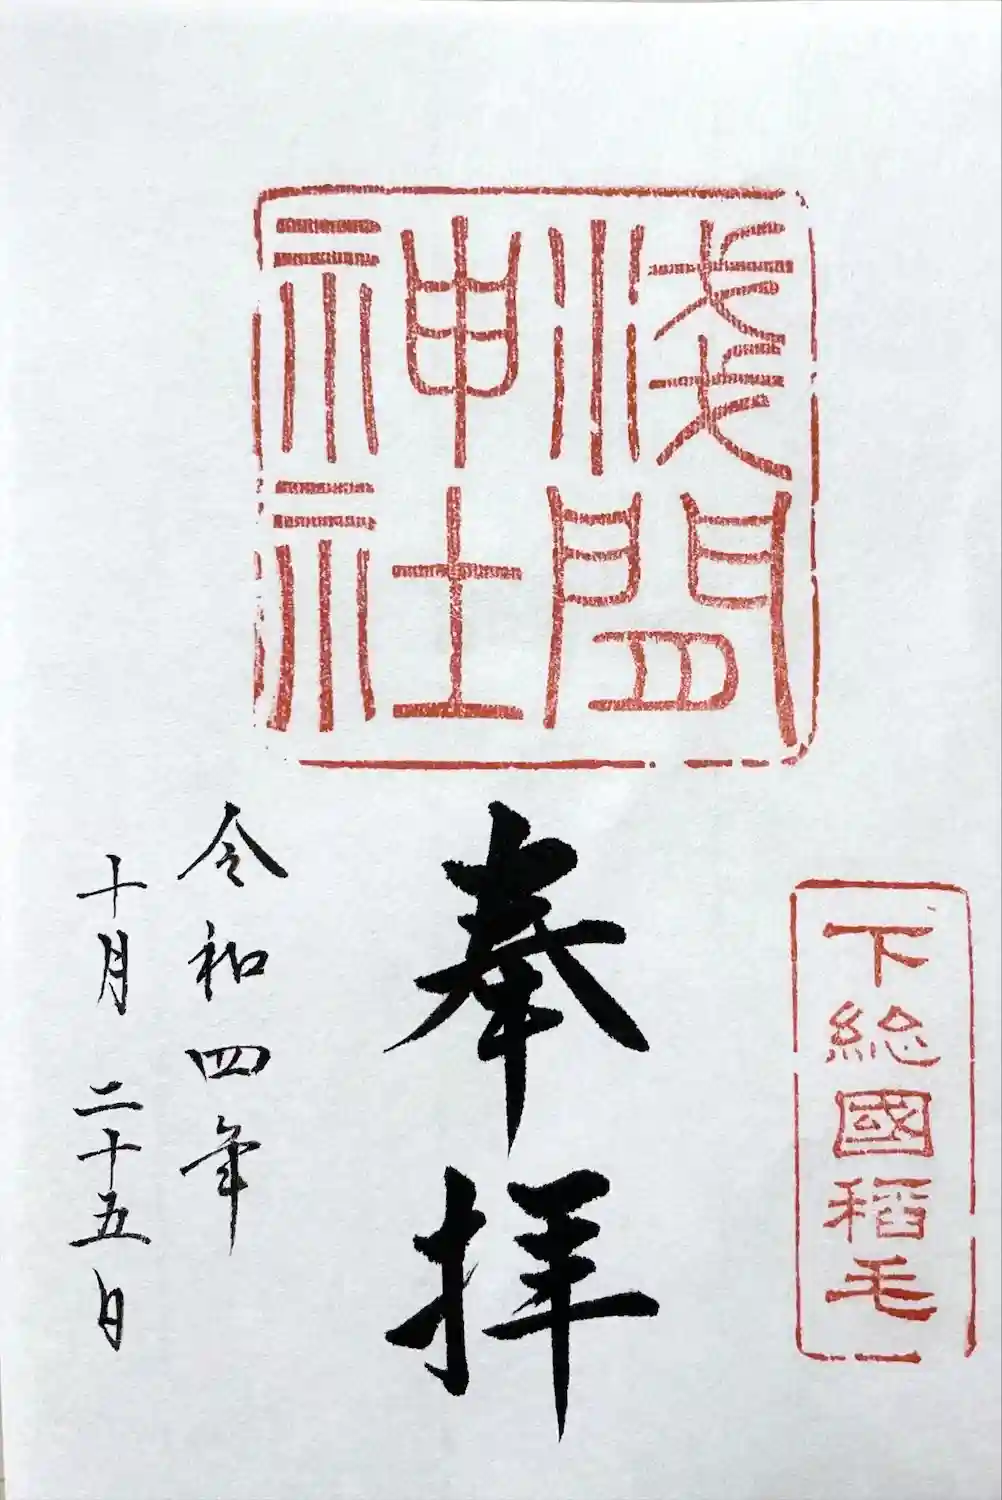 下総國稲毛
淺間
神社
奉拝
令和四年
十月二十五日